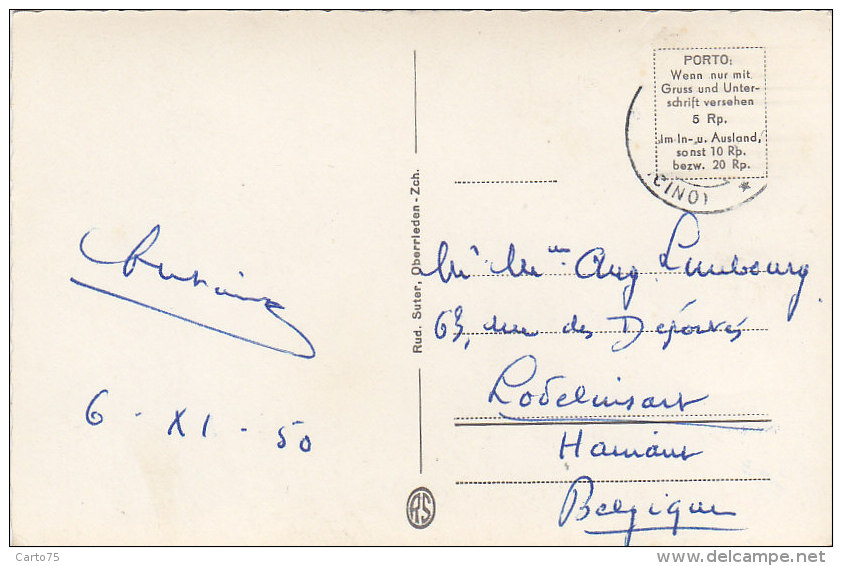 PORTO:
Wenn nur mit
Gruss und Unter-
schrift versehen
5 Rp.
Im In- u. Ausland,
sonst 10 Rp.
bezw. 20 Rp.
(ONIO)
Rud. Suter, Oberrieden - Zch.
6 - XI - 50
Mr Mme Aug Limbourg
63, rue des Déportés
Lodelinsart
Hainaut
Belgique
RS
Carto75
www.delcampe.net